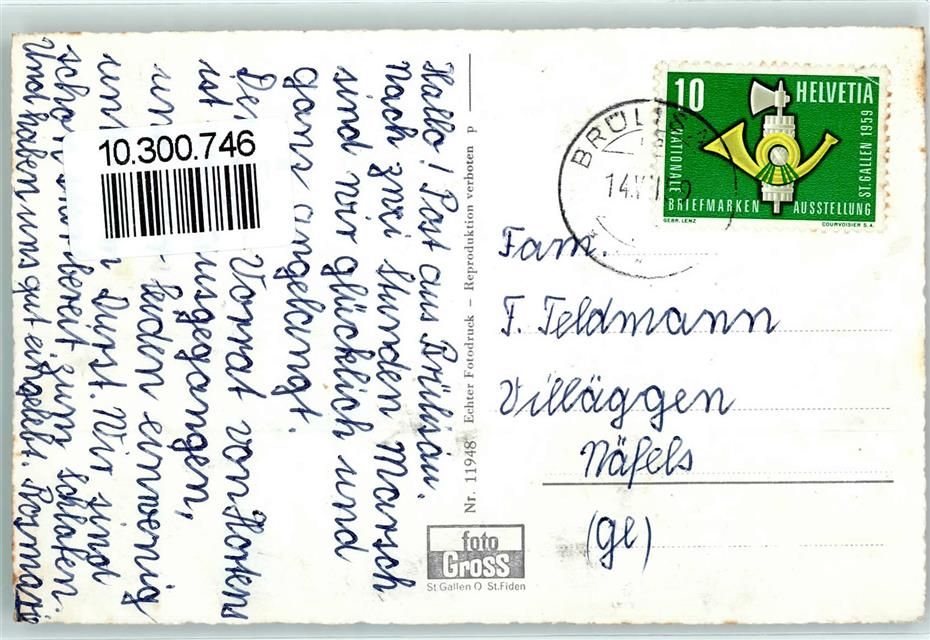 Hallo! Post aus Brülisau.
Nach zwei Stunden Marsch
sind wir glücklich und
ganz angelangt.
Vorrat von Hosten
ist usgegangen,
un leiden ein wenig
unt Durst. Wir sind
scho bereit zum schlafen.
Und haben uns gut eingelebt. Rosmarie
10.300.746
Nr. 11948 Echter Fotodruck – Reproduktion verboten P
foto
Gross
St Gallen O St. Fiden
BRÜL
14.
10 HELVETIA
NATIONALE
BRIEFMARKEN AUSSTELLUNG
ST. GALLEN 1959
GEBR. LENZ
COURVOISIER S.A.
Fam.
F. Feldmann
Villäggen
Näfels
(Gl)